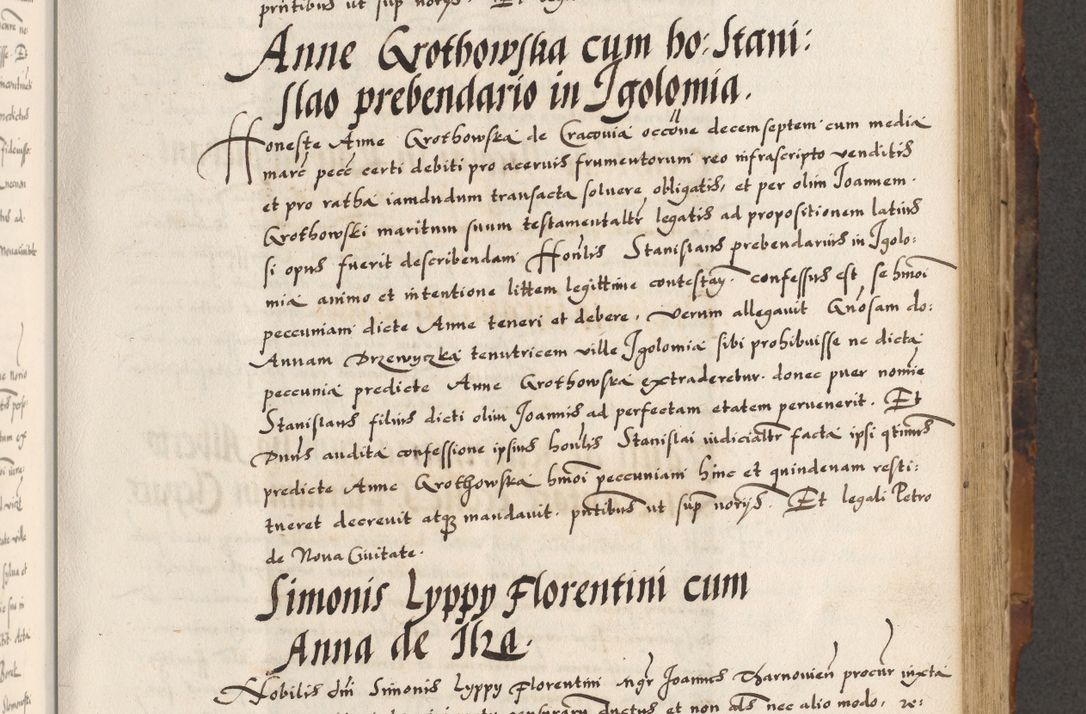 Anne Grothowska cum ho: Stani:
slao prebendario in Igolomia.
Honeste Anne Grothowska de Cracovia occõne decemseptem cum media
marc pecc certi debiti pro acervis frumentorum reo infrascripto venditis
et pro ratha iamdudum transacta solvere obligatis, et per olim Joannem
Grothowski maritum suum testamentaltr legatis ad propositionem latius
si opus fuerit describendam Honlis Stanislaus prebendarius in Igolo:
mia animo et intentione littem legittime contestay confessus est se hmoi
peccuniam dicte Anne teneri et debere, verum allegavit Gnosam do:
Annam Drzewyczka tenutricem ville Igolomia sibi prohibuisse ne dicta
peccunia predicte Anne Grothowska extraderetur donec puer nomie
Stanislaus filius dicti olim Joannis ad perfectam etatem pervenerit. Et
Dnus audita confessione ipsius honlis Stanislai iudicialtr facta ipsi qtimus
predicte Anne Grothowska hmoi peccuniam hinc et quindenam resti:
tueret decrevit atq mandavit. pntibus ut sup noryis. Et legali Petro
de Nova Civitate.
Simonis Lyppy Florentini cum
Anna de Ilza.
Nobilis dni Simonis Lyppy Florentini mgr Joannes Tharnovien procur iuxta
ductus et non als nec alio modo, re: